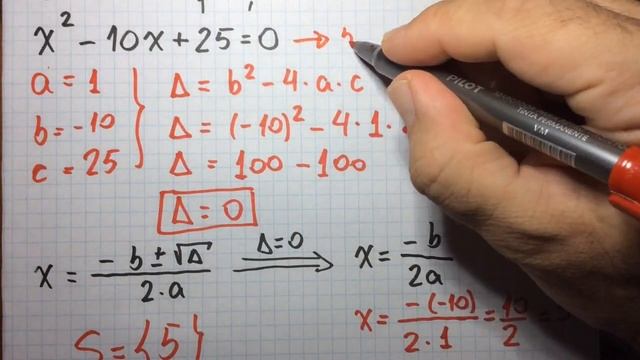 x² - 10x + 25 = 0 →
a = 1
b = -10
c = 25
Δ = b² - 4·a·c
Δ = (-10)² - 4·1·
Δ = 100 - 100
Δ = 0
x = (-b ± √Δ)/(2·a)
Δ=0
x = -b/2a
x = -(-10)/(2·1) = 10/2 =
S = {5}
PILOT
TINTA PERMANENTE
VM